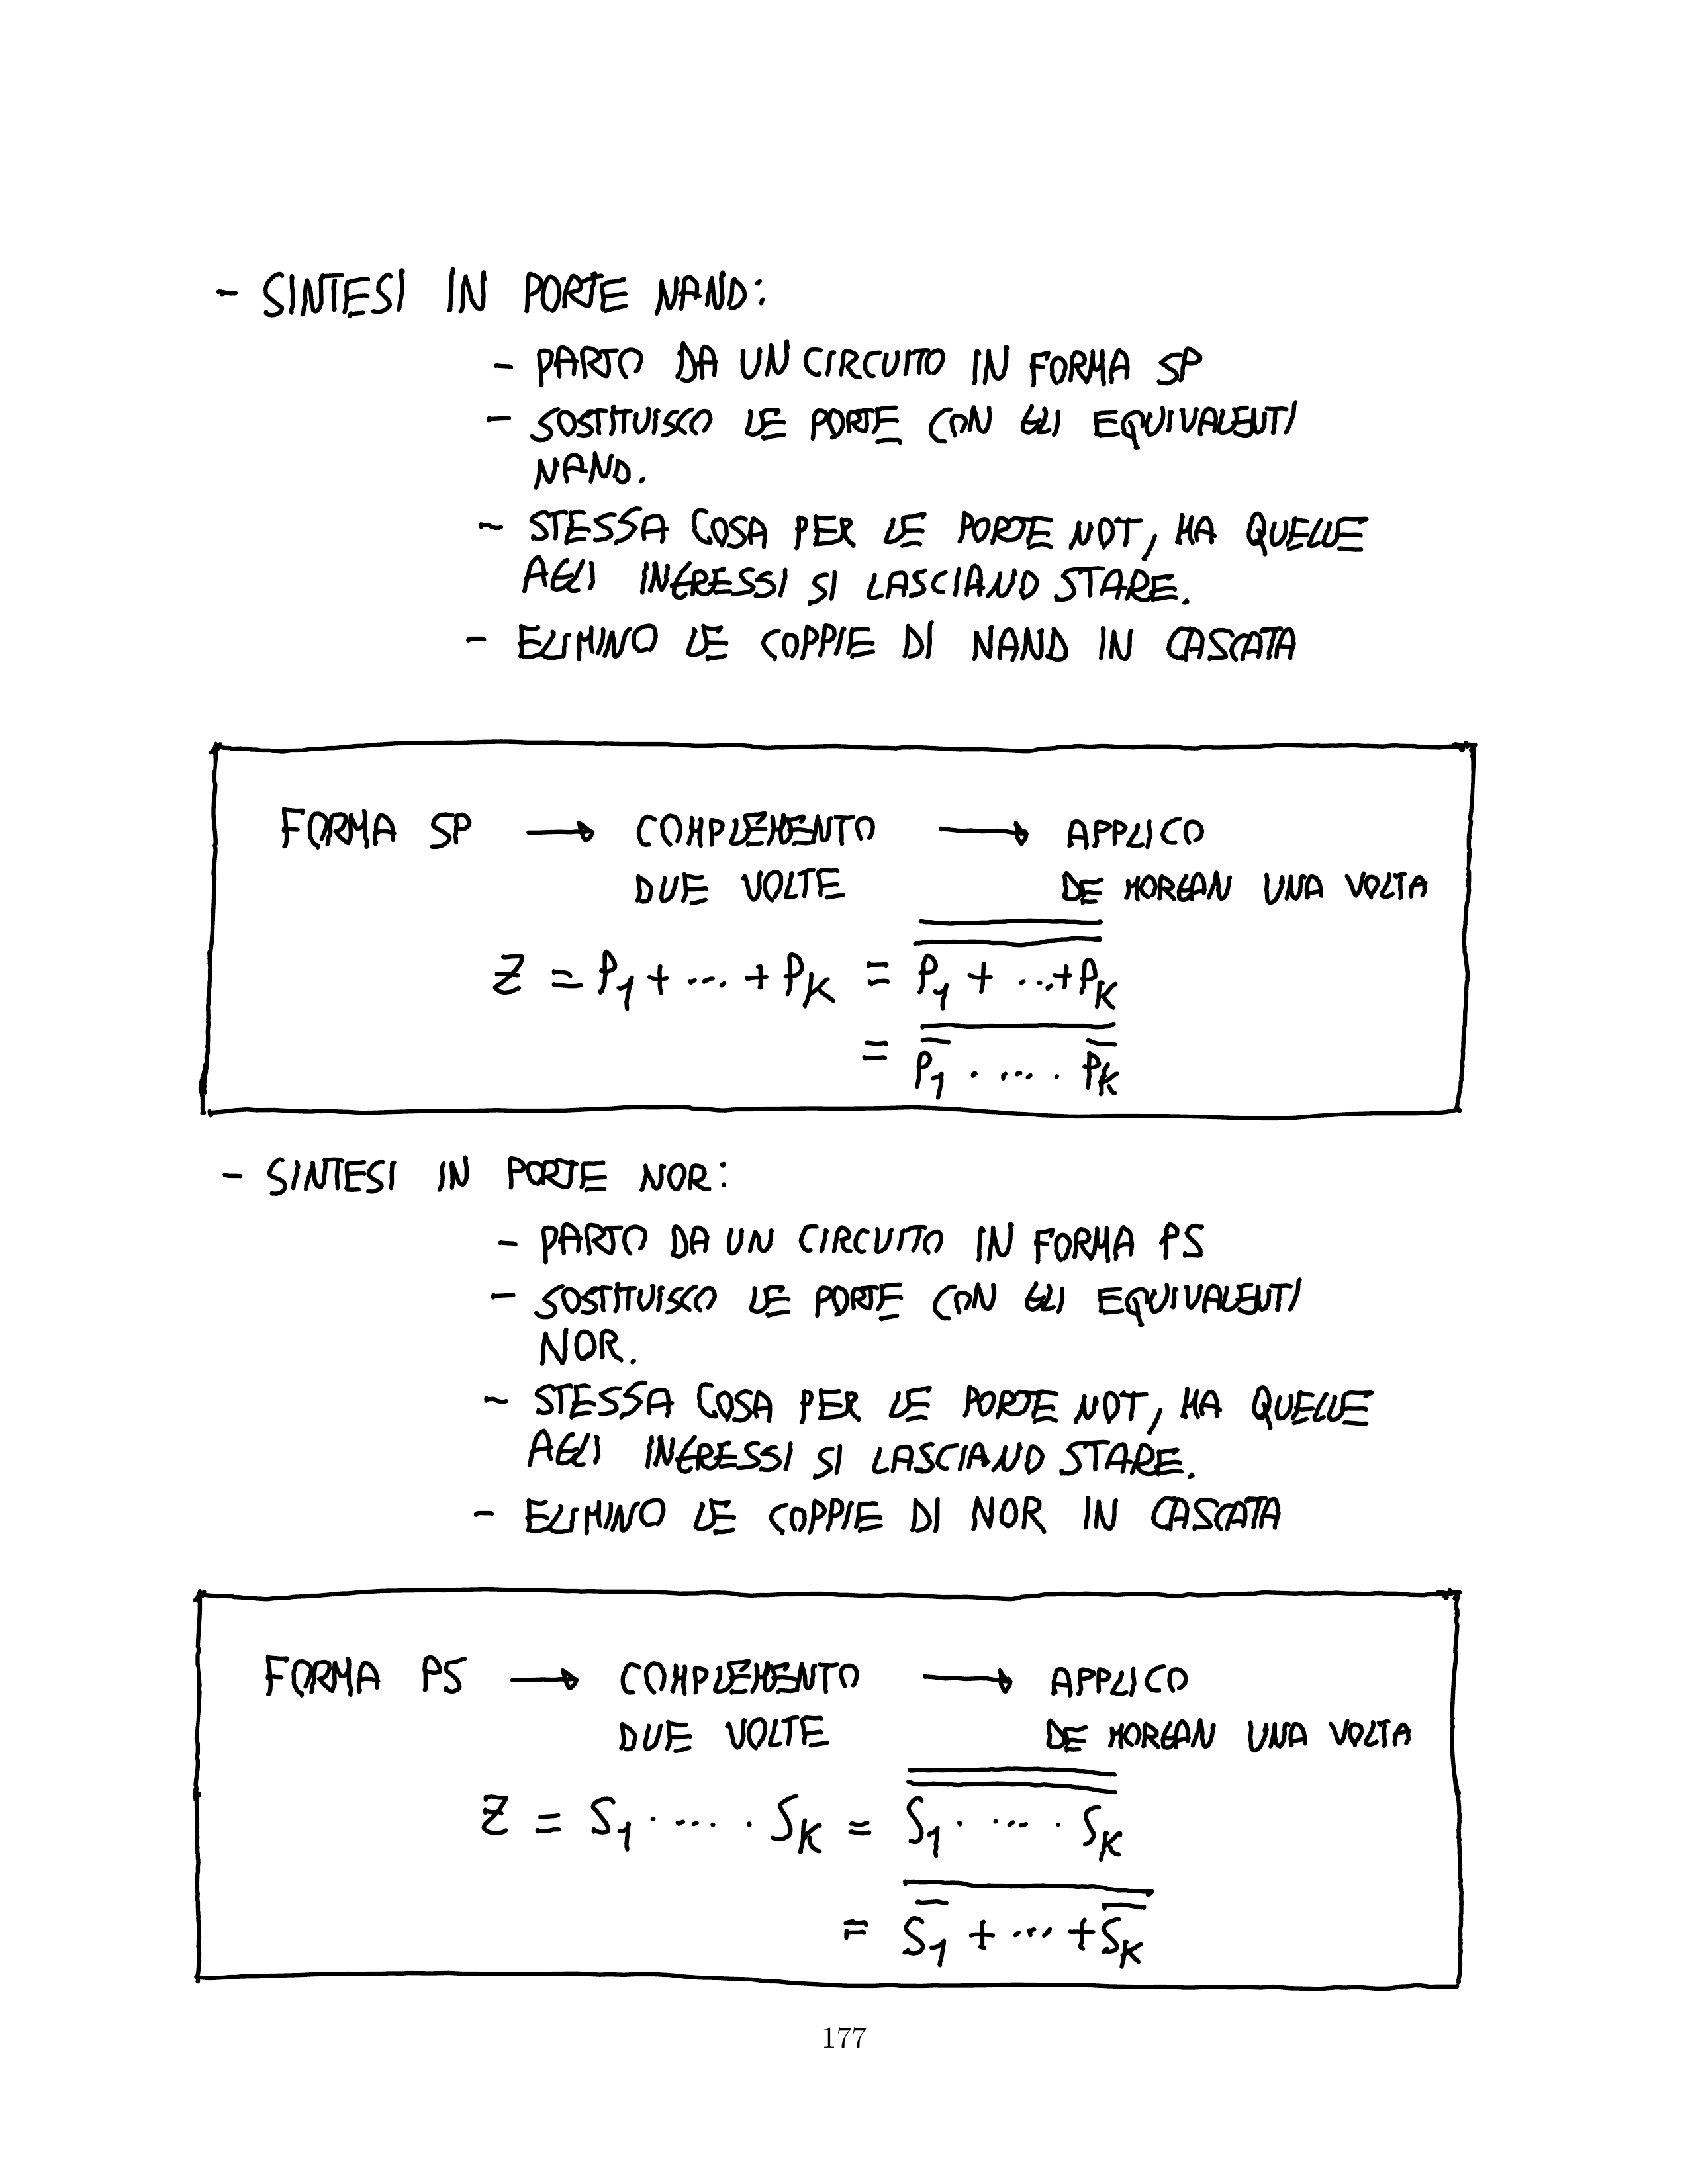 - SINTESI IN PORTE NAND:
- PARTO DA UN CIRCUITO IN FORMA SP
- SOSTITUISCO LE PORTE CON GLI EQUIVALENTI
NAND.
- STESSA COSA PER LE PORTE NOT, MA QUELLE
AGLI INGRESSI SI LASCIANO STARE.
- ELIMINO LE COPPIE DI NAND IN CASCATA
FORMA SP → COMPLEMENTO → APPLICO
DUE VOLTE DE MORGAN UNA VOLTA
Z = P₁ + ... + P_K = \overline{\overline{P₁ + ... + P_K}}
= \overline{\overline{P₁} · ... · \overline{P_K}}
- SINTESI IN PORTE NOR:
- PARTO DA UN CIRCUITO IN FORMA PS
- SOSTITUISCO LE PORTE CON GLI EQUIVALENTI
NOR.
- STESSA COSA PER LE PORTE NOT, MA QUELLE
AGLI INGRESSI SI LASCIANO STARE.
- ELIMINO LE COPPIE DI NOR IN CASCATA
FORMA PS → COMPLEMENTO → APPLICO
DUE VOLTE DE MORGAN UNA VOLTA
Z = S₁ · ... · S_K = \overline{\overline{S₁ · ... · S_K}}
= \overline{\overline{S₁} + ... + \overline{S_K}}
177